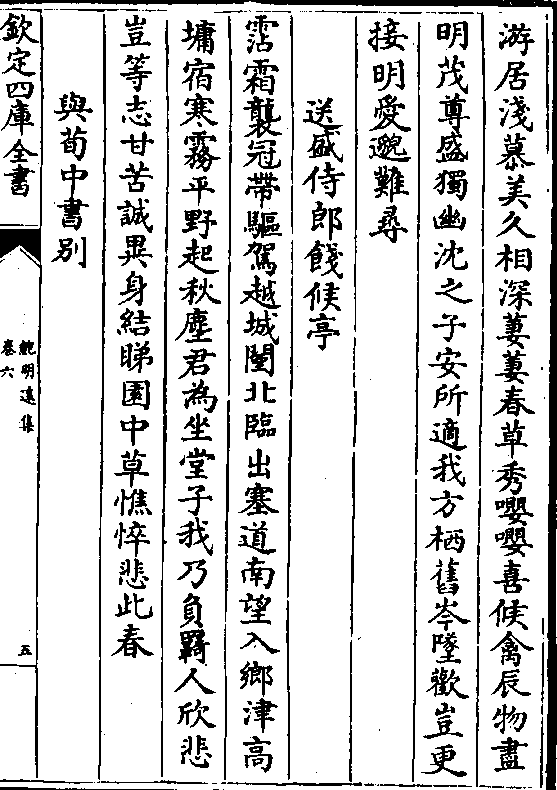 游居淺慕美久相深萋萋春草秀嚶嚶喜候禽辰物盡
明茂尊盛獨幽沈之子安所適我方栖舊岑墜歡豈更
接明愛邈難尋
送盛侍郎餞候亭
霑霜襲冠帶驅駕越城闉北臨出塞道南望入鄉津高
墉宿寒霧平野起秋塵君為坐堂子我乃負羇人欣悲
豈等志甘苦誠異身結睇園中草憔悴悲此春
與荀中書別
欽定四庫全書
鮑明遠集
卷六
五